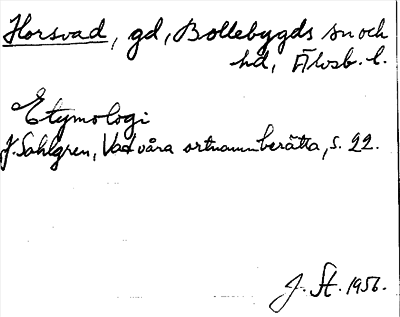 Horsvad, gd, Bollebygds sn och
hd, Älvsb. l.
Etymologi
J. Sahlgren, Vad våra ortnamn berätta, s. 22.
J. St. 1956.